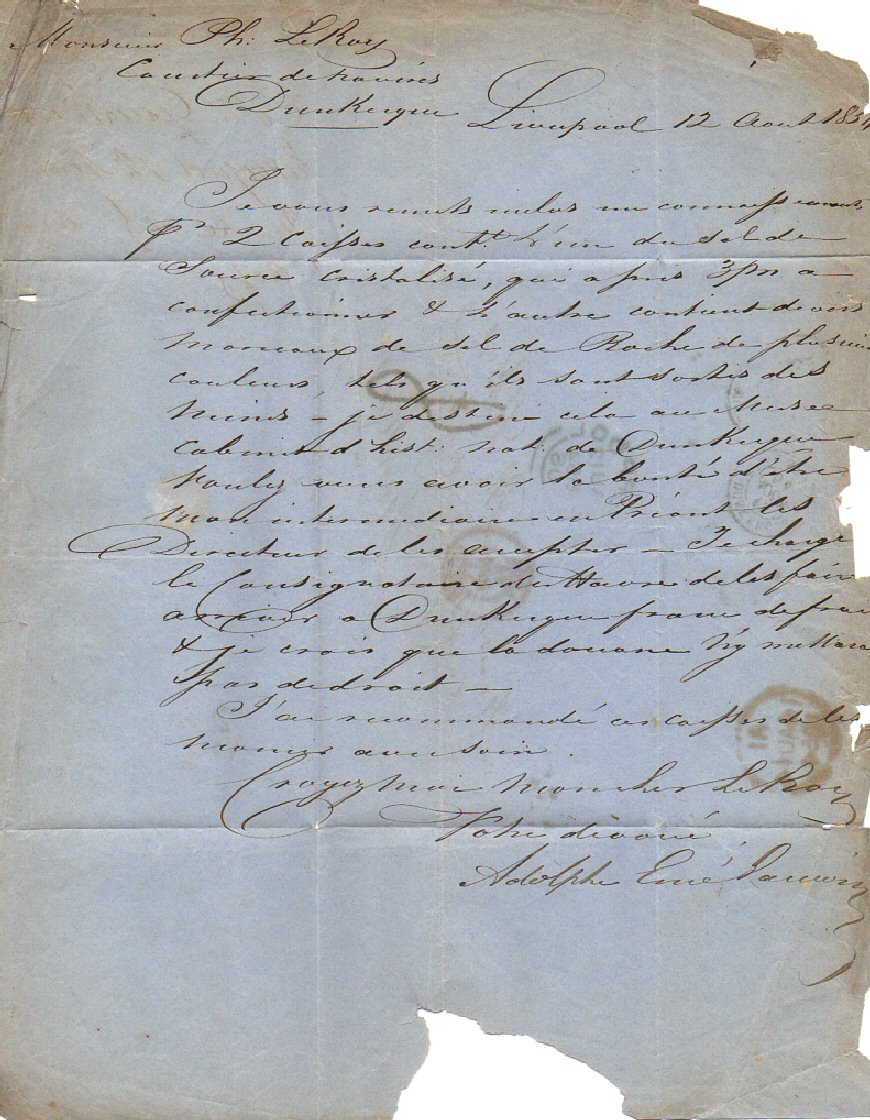 Monsieur Ph: LeRoy
Courtier de navires
Dunkerque
Liverpool 12 Août 185
Je vous remets inclus un connaissement
pr 2 Caisses contt. l'une du sel de
Source cristalisé, qui a pris 3 a
confectionner & l'autre contient divers
Morceaux de Sel de Roche de plusieurs
couleurs, tels qu'ils sont sortis des
Mines – je destine cela au Musée
Cabinet d'hist: nat: de Dunkerque
Voulez vous avoir la bonté d'être
Mon intermediaire en Priant les
Directeur de les accepter – Je charge
le Consignataire du Havre de les faire
arriver a Dunkerque franc de frais
& je crois que la douane n'y mettera
pas de droit –
J'ai recommandé ces caisses de les
Manier avec soin.
Croyez Moi Mon cher LeRoy
Votre dévoué
Adolphe